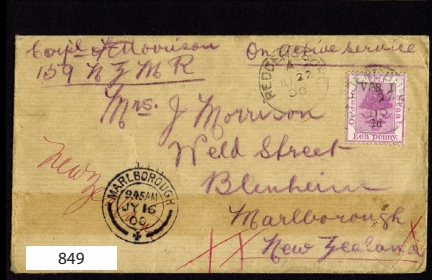 Corpl J Morrison
159 N Z M R
On active service
A
JU 22
00
V R I
Oranje Vrij Staat
1d
Een penny.
Mrs. J Morrison
Weld Street
Blenheim
Marlborough
New Zealand
New Z
MARLBOROUGH
9.45AM
JY 16
00
849